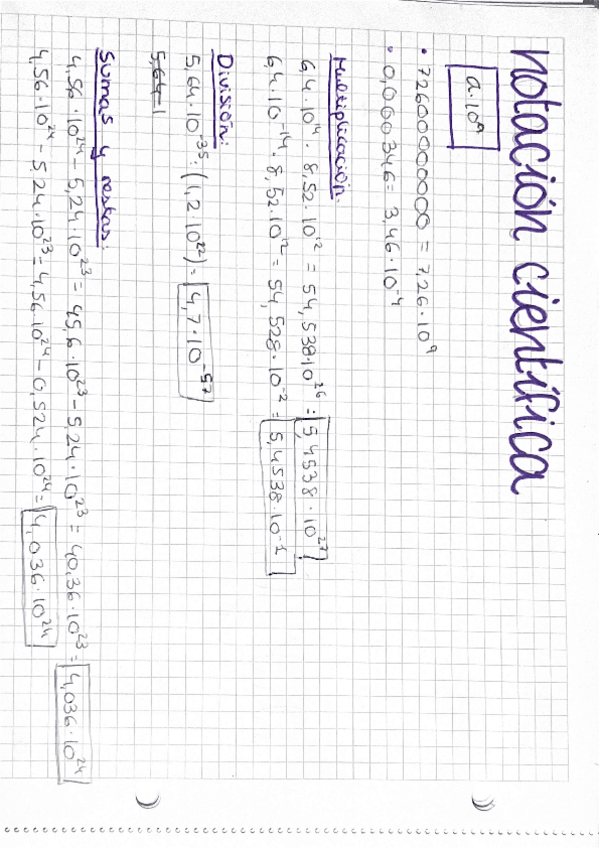 notación científica
a·10ⁿ
• 72600000000 = 7,26·10⁹
• 0,000346 = 3,46·10⁻⁴
Multiplicación:
6,4·10¹⁴·8,52·10¹² = 54,538·10²⁶ = 5,4538·10²⁷
6,4·10⁻¹⁴·8,52·10¹² = 54,528·10⁻² = 5,4538·10⁻¹
División:
5,64·10⁻³⁵:(1,2·10²²) = 4,7·10⁻⁵⁷
5,64-1
Sumas y restas:
4,56·10²⁴-5,24·10²³ = 45,6·10²³-5,24·10²³ = 40,36·10²³ = 4,036·10²⁴
4,56·10²⁴-5,24·10²³ = 4,56·10²⁴-0,524·10²⁴ = 4,036·10²⁴